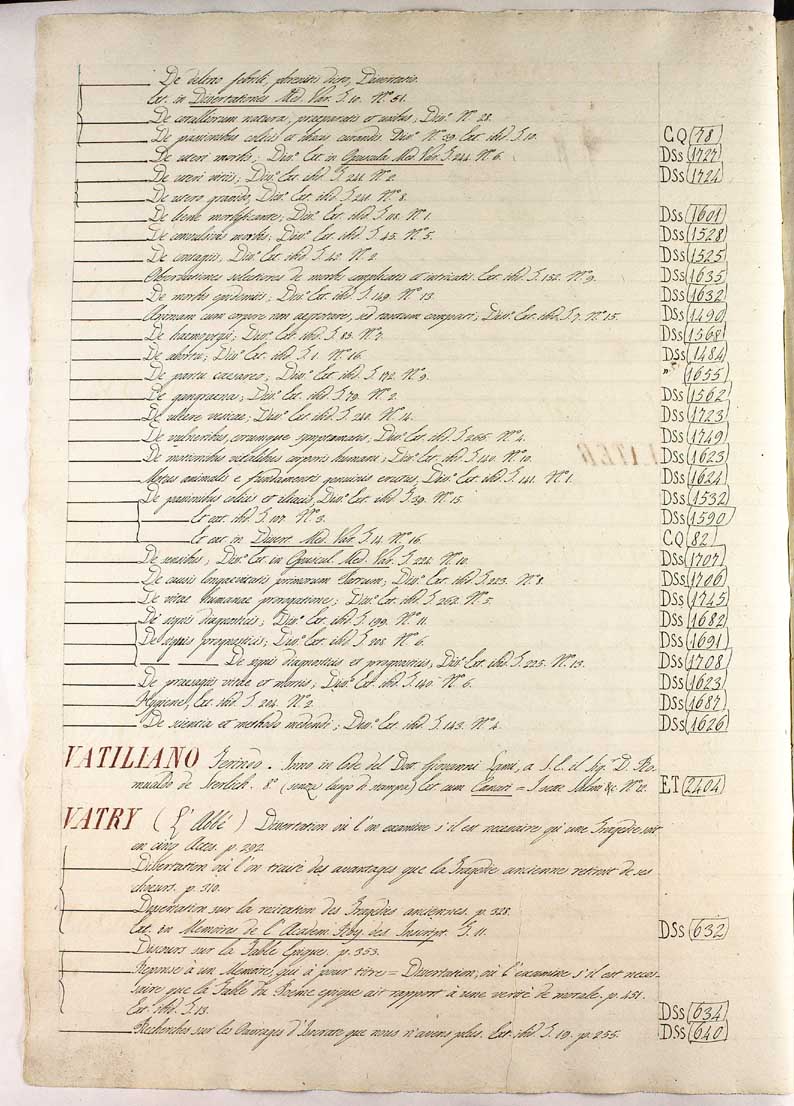 De delirio febrili, phrenitis dicto, Dissertatio.
Ext. in Dissertationes Med. Var. T. 10. N.° 51.
De corallorum natura, praeparatis et usibus; Dis.° N.° 28.
De passionibus colicis et iliacis curandis. Dis.° N.° 39. Ext. ibid. T. 10. CQ (78)
De uteri morbis; Dis.° Ext. in Opuscula Med. Var. T. 244. N.° 6. DSs (1727)
De uteri vitiis; Dis.° Ext. ibid. T. 241. N.° 2. DSs (1724)
De utero gravido, Dis.° Ext. ibid. T. 241. N.° 8.
De bene mortificante; Dis.° Ext. ibid. N.° 1. DSs (1601)
De convulsivis morbis; Dis.° Ext. ibid. T. 45. N.° 5. DSs (1528)
De contagiis; Dis.° Ext. ibid. T. 42. N.° 2. DSs (1525)
Observationes selectiores de morbis complicatis et intricatis. Ext. ibid. T. 152. N.° 9. DSs (1635)
De morbis epidemiis; Dis.° Ext. ibid. T. 149. N.° 13. DSs (1632)
Animam cum corpore non aegrotare, sed tantum compati; Dis.° Ext. ibid. T. 7. N.° 15. DSs (1490)
De haemoptysi; Dis.° Ext. ibid. T. 83. N.° 7. DSs (1568)
De abortu; Dis.° Ext. ibid. T. 1. N.° 16. DSs (1484)
De partu caesareo; Dis.° Ext. ibid. T. 172. N.° 9. " (1655)
De gangraena; Dis.° Ext. ibid. T. 79. N.° 2. DSs (1562)
De ulcere vesicae; Dis.° Ext. ibid. T. 240. N.° 14. DSs (1723)
De vulneribus, eorumque symptomatis, Dis.° Ext. ibid. T. 266. N.° 4. DSs (1749)
De motionibus vitalibus corporis humani; Dis.° Ext. ibid. T. 140. N.° 10. DSs (1623)
Motus animalis e fundamentis genuinis erutus; Dis.° Ext. ibid. T. 141. N.° 1. DSs (1624)
De passionibus colicis et iliacis, Dis.° Ext. ibid. T. 39. N.° 15. DSs (1532)
Et ext. ibid. T. 107. N.° 3. DSs (1590)
Et ext. in Dissert. Med. Var. T. 14. N.° 16. CQ (82)
De sensibus; Dis.° Ext. in Opuscul. Med. Var. T. 224. N.° 10. DSs (1707)
De causis longaevitatis primorum Patrum; Dis.° Ext. ibid. T. 223. N.° 8. DSs (1706)
De vitae humanae prorogatione; Dis.° Ext. ibid. T. 262. N.° 5. DSs (1745)
De signis diagnosticis; Dis.° Ext. ibid. T. 199. N.° 11. DSs (1682)
De signis prognosticis; Dis.° Ext. ibid. T. 208. N.° 6. DSs (1691)
De signis diagnosticis et prognosticis, Dis.° Ext. ibid. T. 225. N.° 13. DSs (1708)
De praesagiis vitae et mortis; Dis.° Ext. ibid. T. 140. N.° 6. DSs (1623)
Hygiene, Ext. ibid. T. 204. N.° 2. DSs (1687)
De scientia et methodo medendi; Dis.° Ext. ibid. T. 143. N.° 4. DSs (1626)
VATILIANO Inno in lode del Dott. Giovanni Lami, a S. E. il Sig.r D. Ro-
mualdo de Sterlich. 8.° (senza luogo di stampa) Ext. cum &c. N.° 12. ET (2404)
VATRY (L'Abbé) Dissertation où l'on examine s'il est necessaire qu'une Tragedie soit
en cinq Actes. p. 292.
Dissertation où l'on traite des avantages que la Tragedie ancienne retiroit de ses
choeurs. p. 310.
Dissertation sur la recitation des Tragedies anciennes. p. 328.
Ext. dn Memoires de l'Academ. Roy. des Inscript. T. 11. DSs (632)
Discours sur la Fable Epique. p. 353.
Reponse à un Memoire, qui à pour titre = Dissertation, où l'examine s'il est neces-
saire que la Fable du Poeme epique ait rapport à une verité de morale. p. 451.
Ext. ibid. T. 13. DSs (634)
Recherches sur les Ouvrages d'Isocrate que nous n'avons plus. Ext. ibid. T. 19. p. 255. DSs (640)